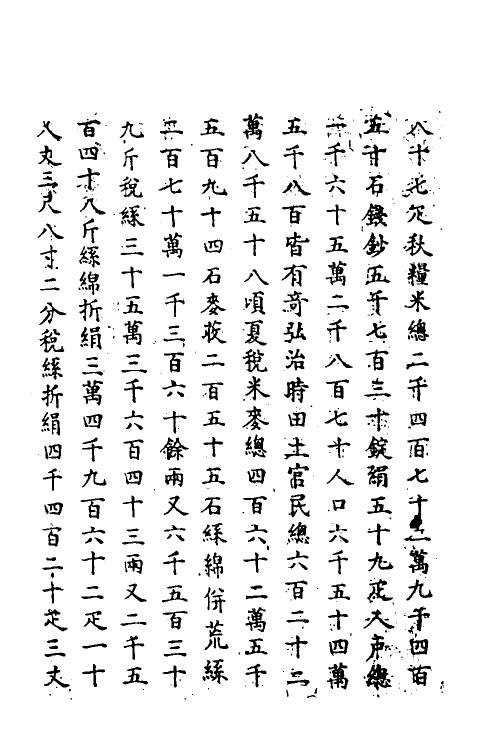 八十七疋秋糧米總二千四百七十二萬九千四百
五十石錢鈔五千七百三十錠絹五十九疋人戶總
一千六十五萬二千八百七十人口六千五十四萬
五千八百皆有奇弘治時田土官民總六百二十二
萬八千五十八頃夏稅米麥總四百六十二萬五千
五百九十四石麥荍二百五十五石絲綿併荒絲
二百七十萬一千三百六十餘兩又六千五百三十
九斤稅絲三十五萬三千六百四十三兩又二千五
百四十八斤絲綿折絹三萬四千九百六十二疋一十
八丈三尺八寸二分稅絲折絹四千四百二十疋三丈